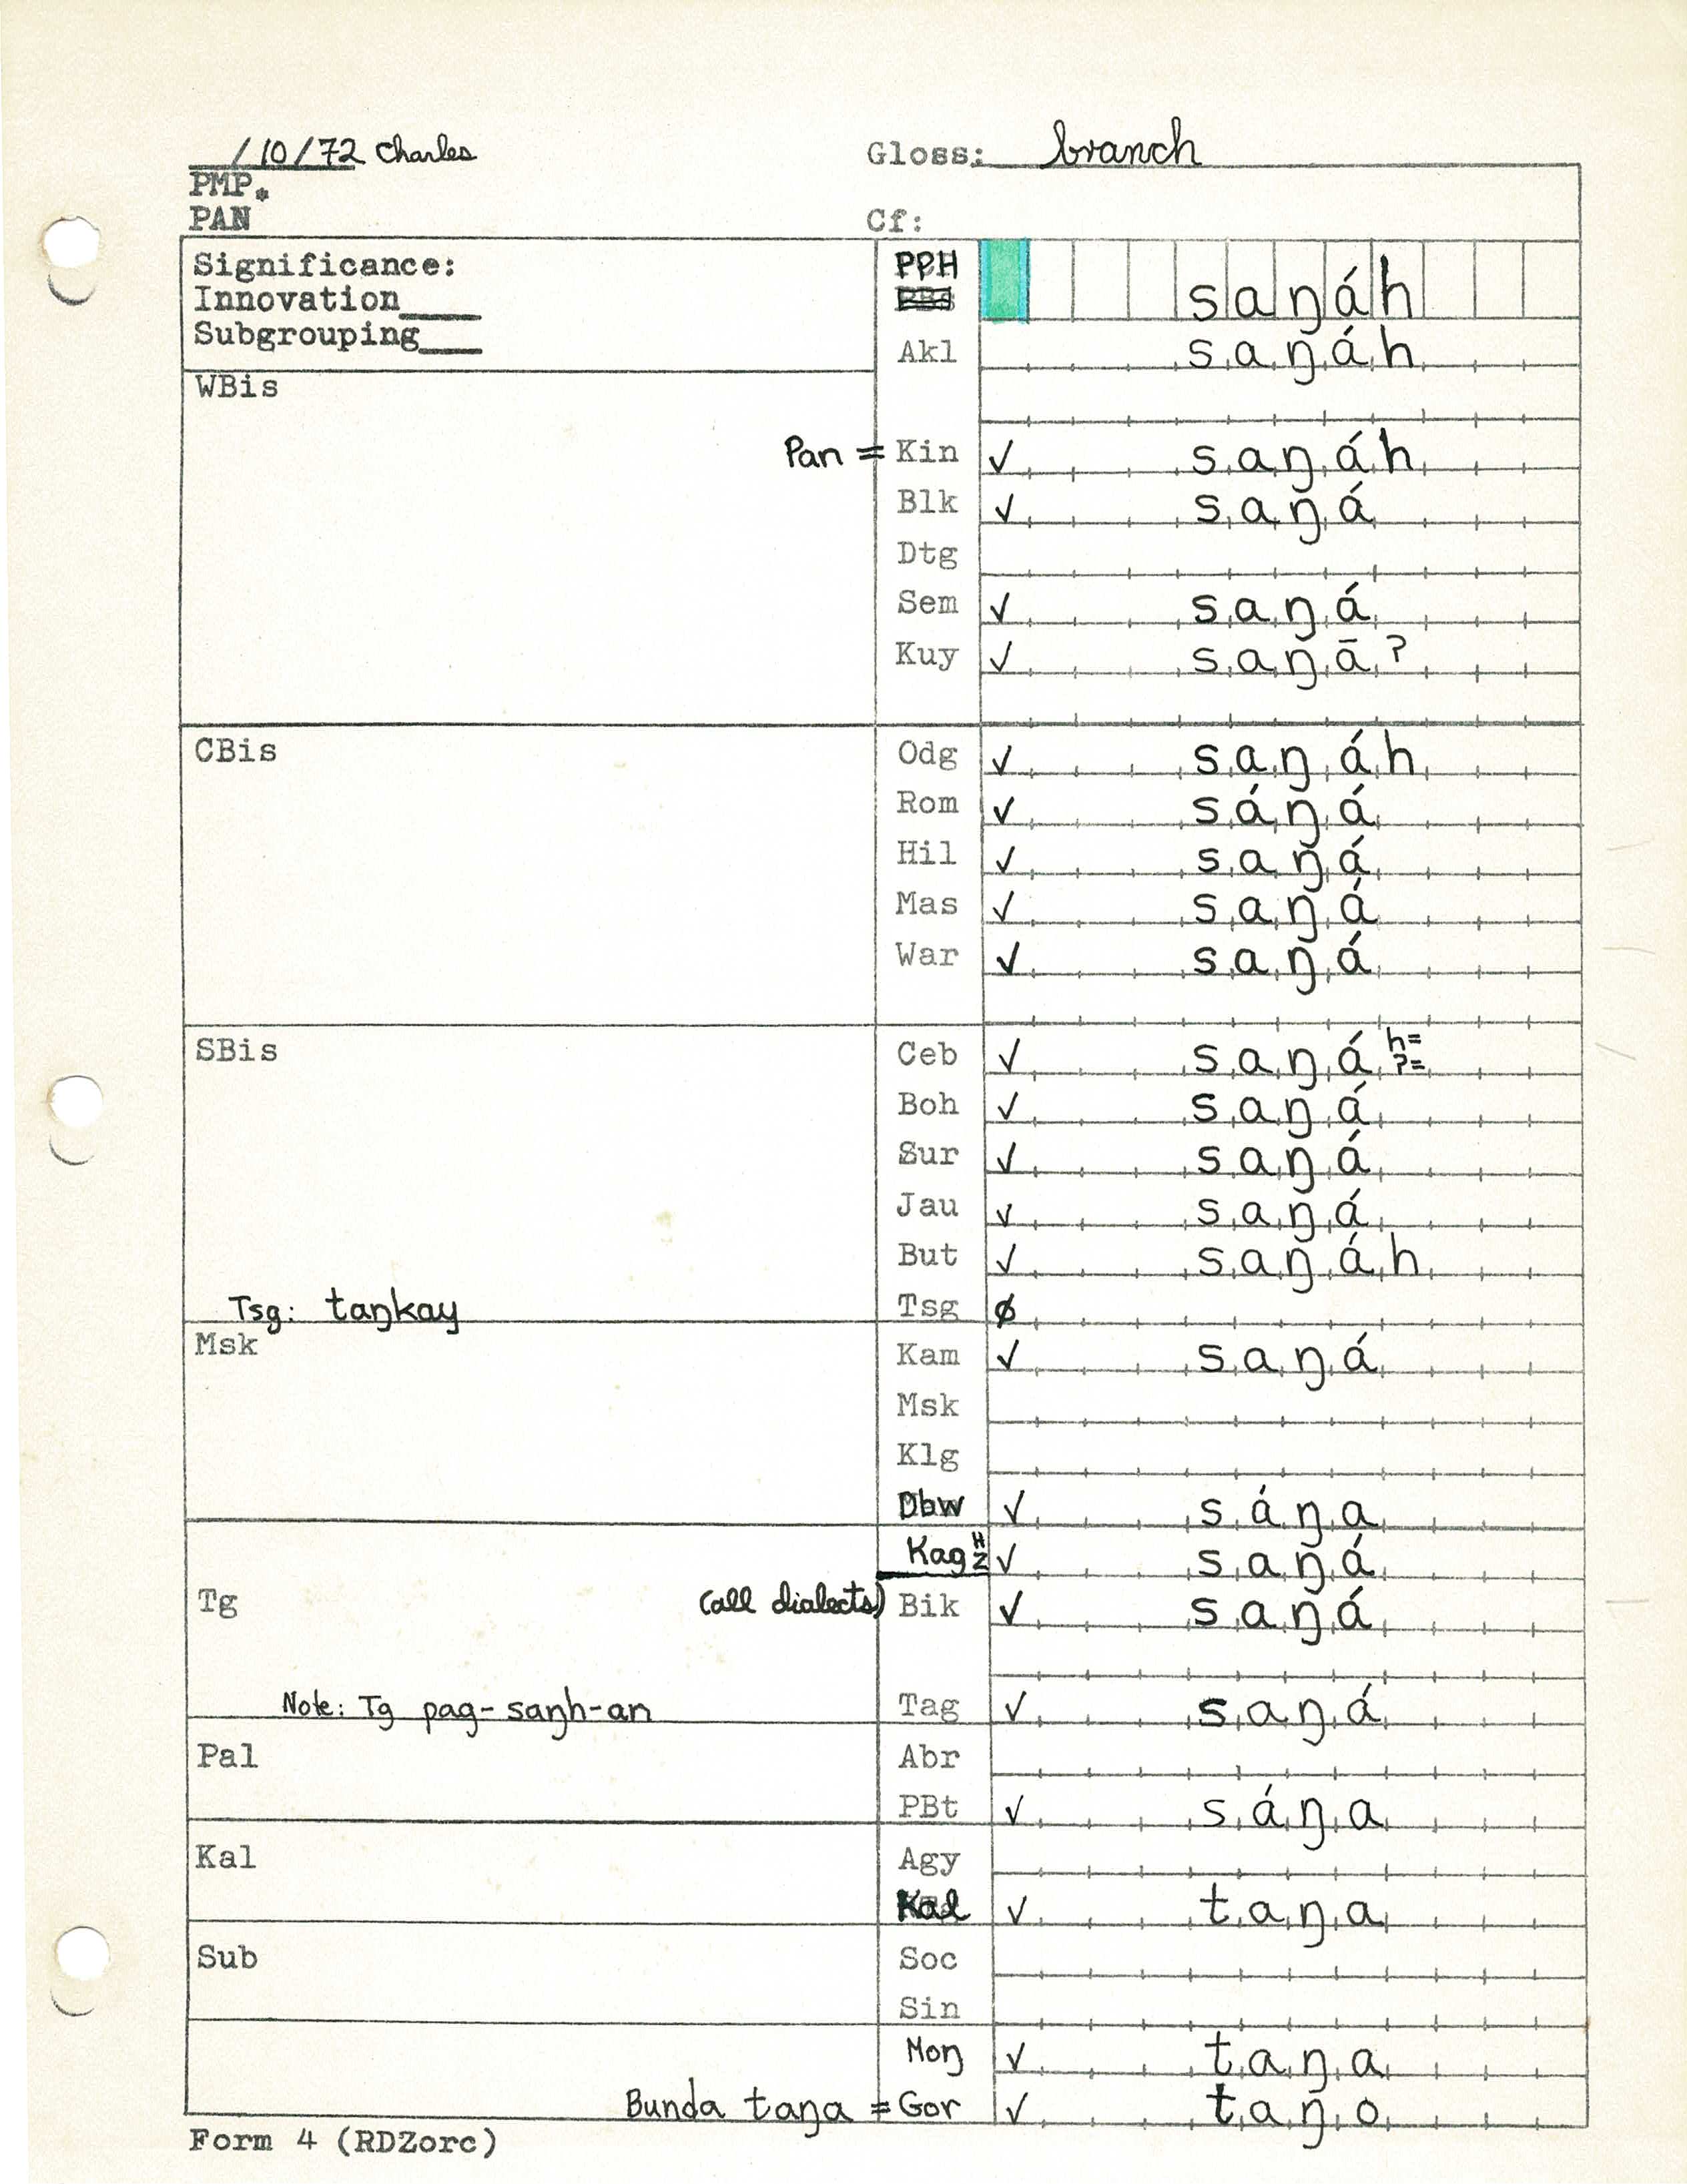 __/10/72 Charles Gloss: branch
PMP*
PAN Cf:
Significance: PPH saŋáh
Innovation____
Subgrouping___
Akl saŋáh
WBis
Pan = Kin ✓ saŋáh
Blk ✓ saŋá
Dtg
Sem ✓ saŋá
Kuy ✓ saŋāʔ
CBis Odg ✓ saŋáh
Rom ✓ sáŋá
Hil ✓ saŋá
Mas ✓ saŋá
War ✓ saŋá
SBis Ceb ✓ saŋá h= ʔ=
Boh ✓ saŋá
Sur ✓ saŋá
Jau ✓ saŋá
But ✓ saŋáh
Tsg: taŋkay Tsg ø
Msk Kam ✓ saŋá
Msk
Klg
Dbw ✓ sáŋa
Kag H Z ✓ saŋá
Tg (all dialects) Bik ✓ saŋá
Note: Tg pag-saŋh-an Tag ✓ saŋá
Pal Abr
PBt ✓ sáŋa
Kal Agy
Kal ✓ taŋa
Sub Soc
Sin
Moŋ ✓ taŋa
Bunda taŋa = Gor ✓ taŋo
Form 4 (RDZorc)